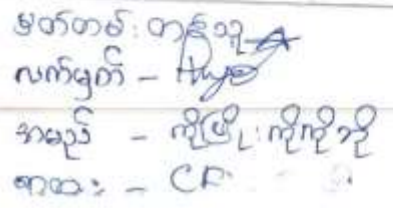 မှတ်တမ်းတန်သူ
လက်မှတ် -
အမည် - ကိုဖြိုးကိုကိုဘို
ရာထူး - CF